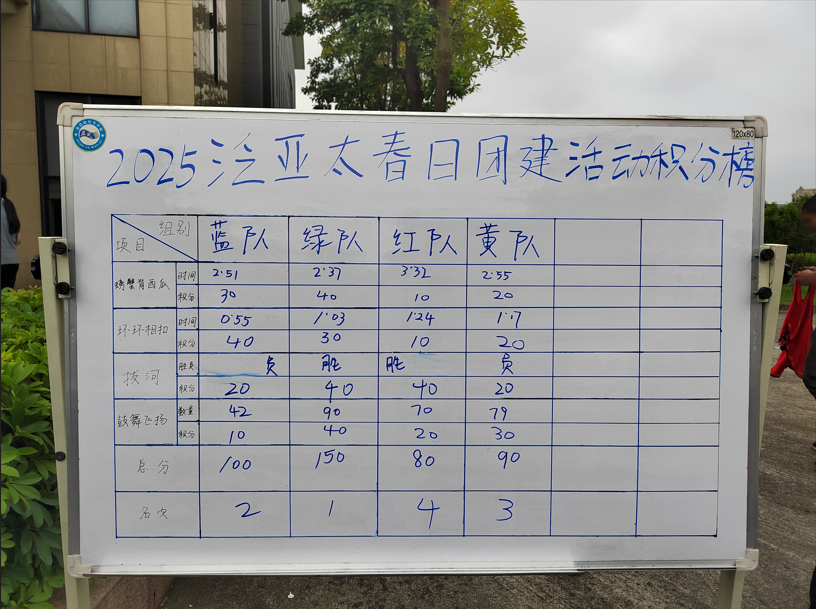 120x80
2025泛亚太春日团建活动积分榜
组别 蓝队 绿队 红队 黄队
项目
螃蟹背西瓜 时间 2'51 2'37 3'32 2'55
积分 30 40 10 20
环环相扣 时间 0'55 1'03 1'24 1'17
积分 40 30 10 20
拔河 胜负 负 胜 胜 负
积分 20 40 40 20
鼓舞飞扬 数量 42 90 70 79
积分 10 40 20 30
总分 100 150 80 90
名次 2 1 4 3